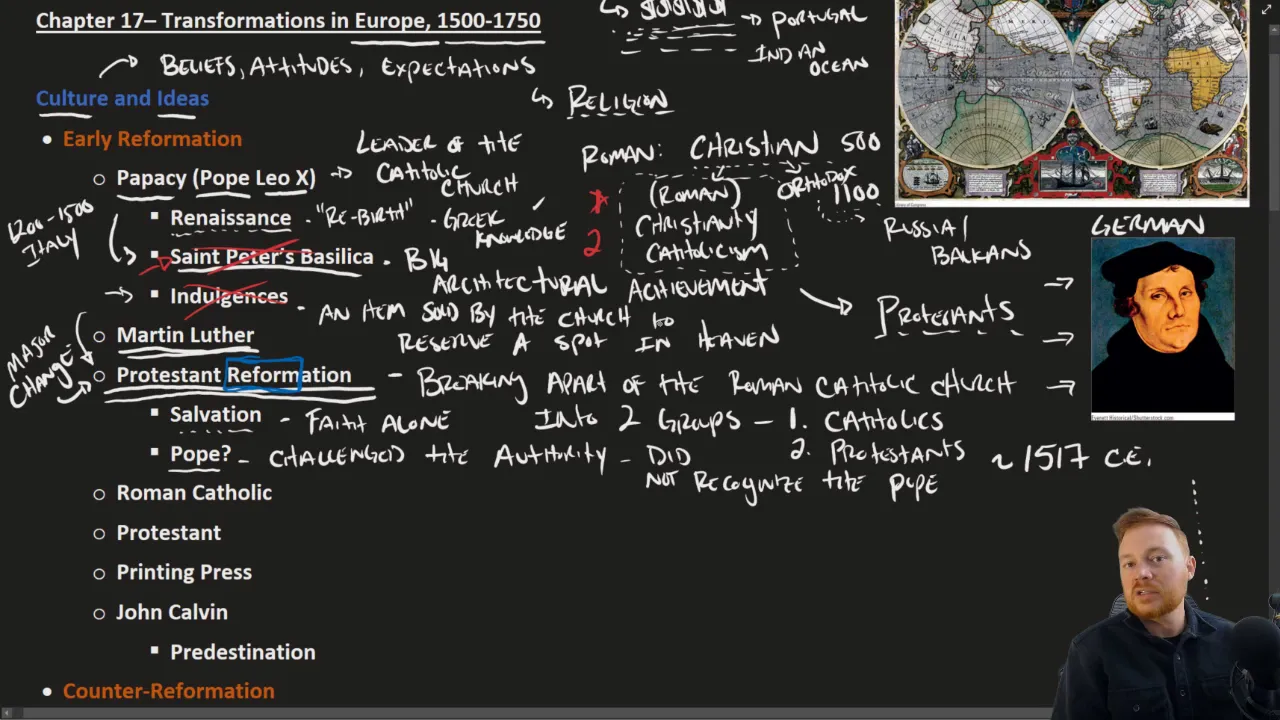 Chapter 17– Transformations in Europe, 1500-1750
→ PORTUGAL
INDIAN
OCEAN
→ BELIEFS, ATTITUDES, EXPECTATIONS
Culture and Ideas
↳ RELIGION
• Early Reformation
LEADER OF THE
CATHOLIC
CHURCH
ROMAN: CHRISTIAN 500
ORTHODOX
1100
○ Papacy (Pope Leo X) →
1
2
(ROMAN)
CHRISTIANTY
CATHOLICISM
1200-1500
ITALY
▪ Renaissance - "RE-BIRTH" - GREEK
KNOWLEDGE
RUSSIA/
BALKANS
GERMAN
▪ Saint Peter's Basilica - BIG
ARCHITECTURAL ACHIEVEMENT
▪ Indulgences - AN ITEM SOLD BY THE CHURCH TO
RESERVE A SPOT IN HEAVEN
→ PROTESTANTS
○ Martin Luther
MAJOR
CHANGE
○ Protestant Reformation - BREAKING APART OF THE ROMAN CATHOLIC CHURCH
INTO 2 GROUPS - 1. CATHOLICS
2. PROTESTANTS
▪ Salvation - FAITH ALONE
▪ Pope? - CHALLENGED THE AUTHORITY - DID
NOT RECOGNIZE THE POPE
~ 1517 C.E.
○ Roman Catholic
○ Protestant
○ Printing Press
○ John Calvin
▪ Predestination
• Counter-Reformation
Everett Historical/Shutterstock.com